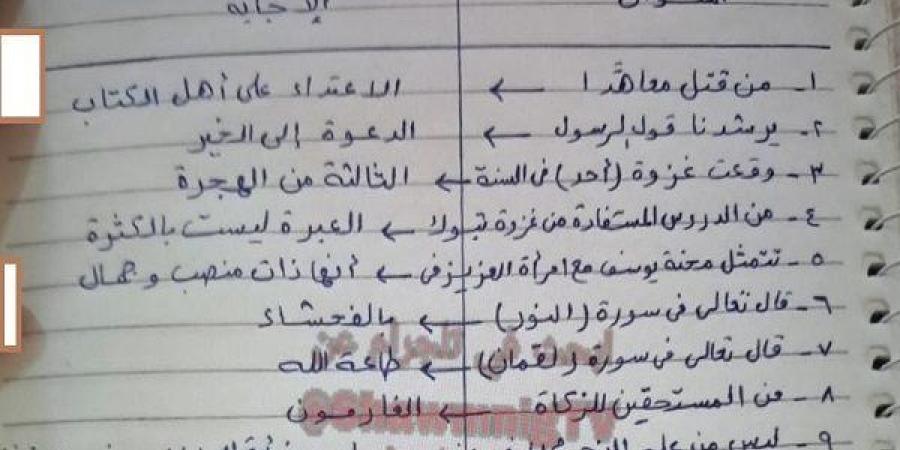 السؤال الإجابة
١- من قتل معاهدًا ← الاعتداء على أهل الكتاب
٢- يرشدنا قول الرسول ← الدعوة إلى الخير
٣- وقعت غزوة (أحد) فى السنة ← الثالثة من الهجرة
٤- من الدروس المستفادة من غزوة تبوك ← العبرة ليست بالكثرة
٥- تتمثل محنة يوسف مع امرأة العزيز فى ← أنها ذات منصب وجمال
٦- قال تعالى فى سورة (النور) ← بالفحشاء
٧- قال تعالى فى سورة (لقمان) ← طاعة الله
٨- من المستحقين للزكاة ← الغارمون
٩- ليس من على